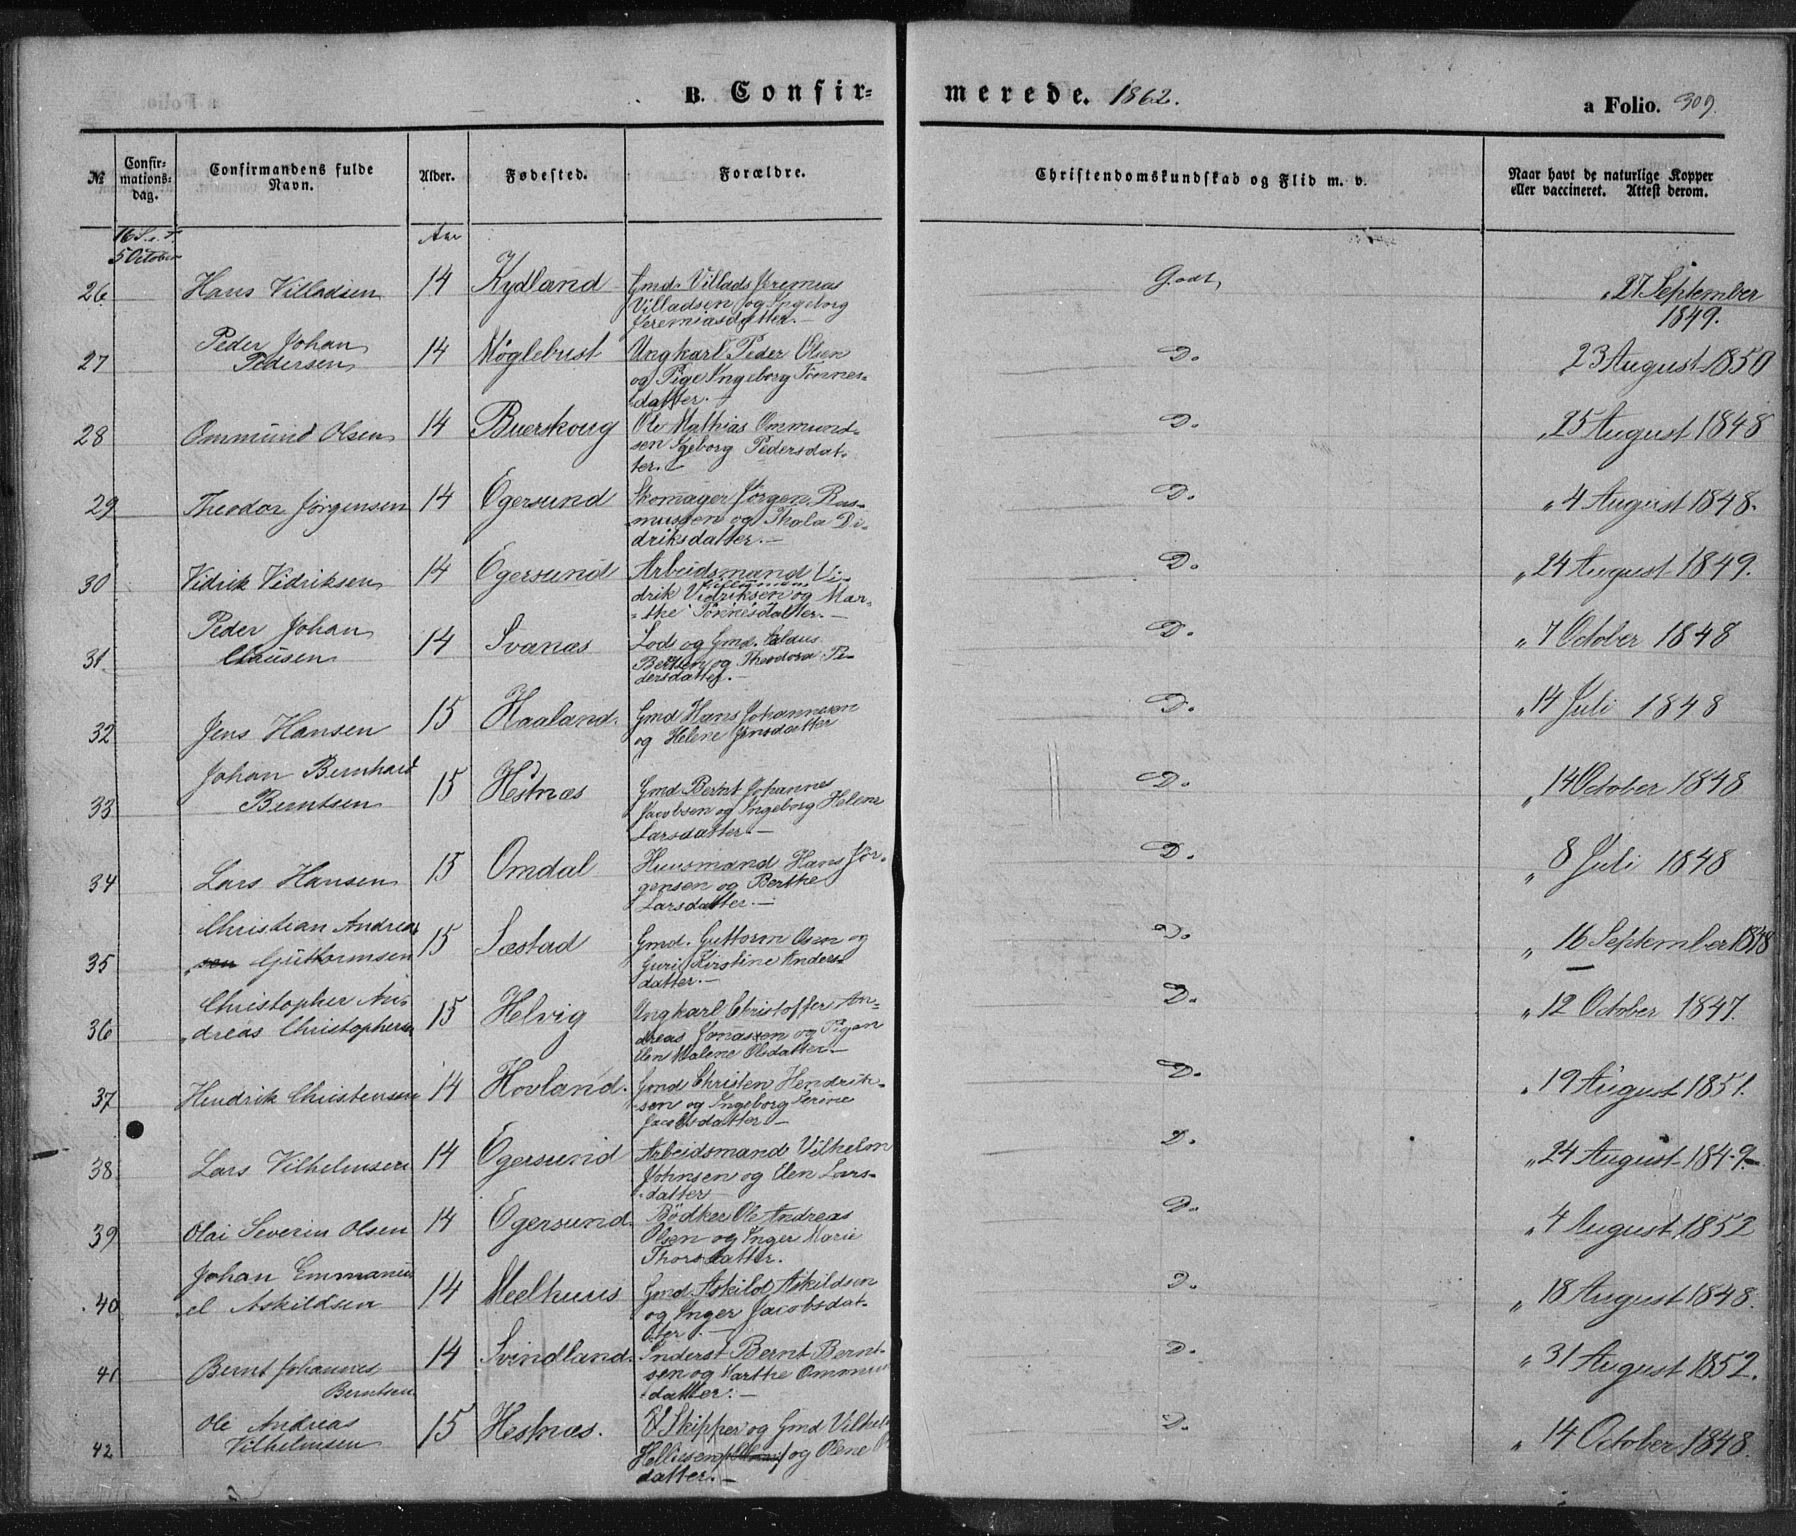 B. Confir- merede. 1862. a Folio. 309.
№ Confir-mations-dag. Confirmandens fulde Navn. Alder. Fødested. Forældre. Christendomskundskab og Flid m. v. Naar havt de naturlige Kopper eller vaccineret. Attest derom.
16 S. e. T. Aar
5 October
26 Hans Villadsen 14 Kydland Gmd. Villads Jeremias Godt, „27 September
Villadsen og Ingeborg 1849.
Jeremiasdatter.—
27 Peder Johan 14 Møglebust Ungkarl Peder Olsen D. 23 August 1850
Pedersen og Pige Ingeborg Tønnes-
datter.—
28 Ommund Olsen 14 Buerskoug Ole Mathias Ommund- D. „25 August 1848
sen Igeborg Pedersdat-
ter.
29 Theodor Jørgensen 14 Egersund Skomager Jørgen Ras- D. „4 August 1848.
mussen og Thala Di-
driksdatter.—
30 Vidrik Vidriksen 14 Egersund Arbeidsmand Vi- D. „24 August 1849.
drik Vidriksen og Mar-
the Tønnesdatter.—
31 Peder Johan 14 Svanæs Lods og Gmd. Claus D. „7 October 1848
Clausen Bertsen og Theodora Pe-
dersdatter.—
32 Jens Hansen 15 Haaland. Gmd Hans Johannesen D. „14 Juli 1848
og Helene Jensdatter
33 Johan Bernhard 15 Hestnæs Gmd Bernt Johannes D. „14 October 1848
Berntsen Jacobsen og Ingeborg Helene
Larsdatter.—
34 Lars Hansen 15 Omdal Huusmand Hans Jør- D. „8 Juli 1848
gensen og Berthe
Larsdatter.—
35 Christian Andreas 15 Sæstad Gmd. Guttorm Olsen og D. „16 September 1848
Guttormsen Guri Kirstine Anders-
datter.—
36 Christopher An- 15 Helvig Ungkarl Christoffer An- D. „12 October 1847.
dreas Christophersen dreas Jonassen og Pigen
Elen Malene Olsdatter.—
37 Hendrik Christensen 14 Hovland. Gmd Christen Hendrik- D. „19 August 1851.
sen og Ingeborg Serine
Jacobsdatter—
38 Lars Vilhelmsen 14 Egersund Arbeidsmand Vilhelm D. „24 August 1849.—
Johnsen og Elen Lars-
datter
39 Olai Severin Olsen 14 Egersund. Bødker Ole Andreas D. „4 August 1852
Olsen og Inger Marie
Thorsdatter.
40 Johan Emmanu- 14 Meelhuus Gmd. Askild Askildsen D. „18 August 1848.
el Askildsen og Inger Jacobsdat-
ter.—
41 Bernt Johannes 14 Svindland. Inderst Bernt Bernt- D. „31 August 1852.
Berntsen sen og Marthe Ommun
datter.—
42 Ole Andreas 15 Hestnæs. Skipper og Gmd Vilhelm D. „14 October 1848.
Vilhelmsen Helliesen og Olene
datter.—